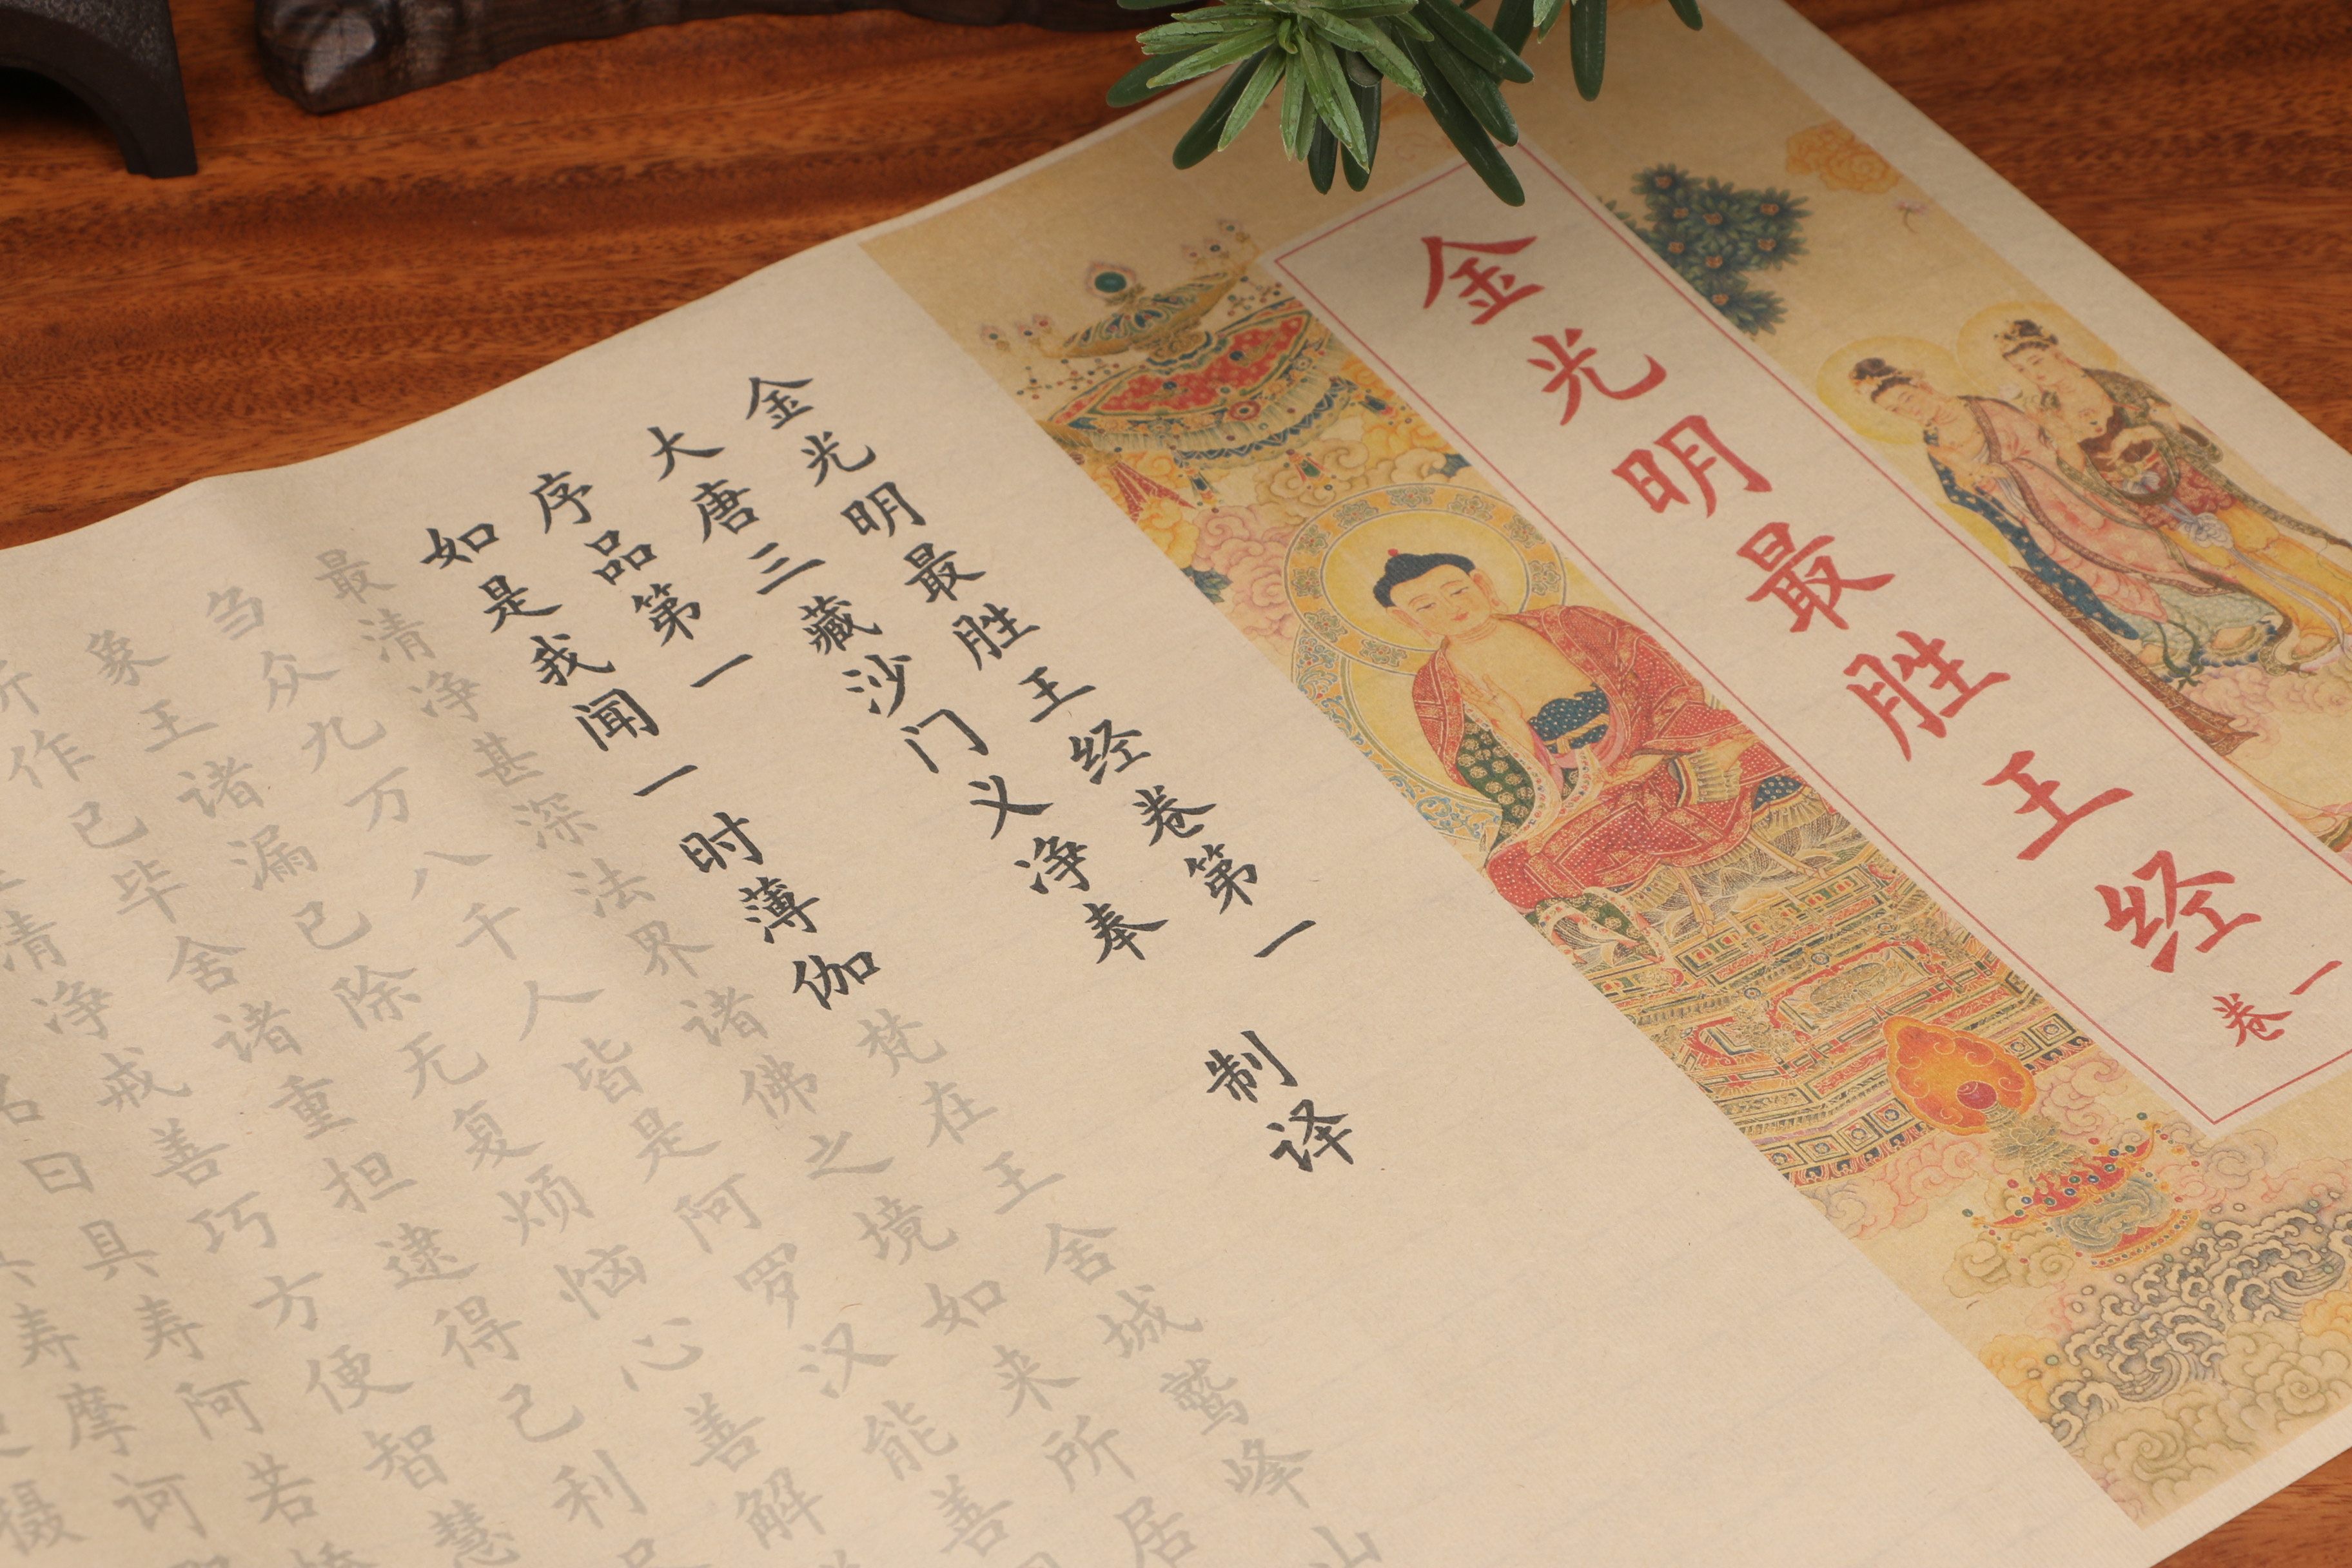 金光明最胜王经 卷一
金光明最胜王经卷第一
大唐三藏沙门义净奉 制译
序品第一
如是我闻一时薄伽梵在王舍城鹫峰山
最清净甚深法界诸佛之境如来所居
刍众九万八千人皆是阿罗汉能善
象王诸漏已除无复烦恼心善解
所作已毕舍诸重担逮得己利
清净戒善巧方便智慧
名曰具寿阿若
寿摩诃
摄